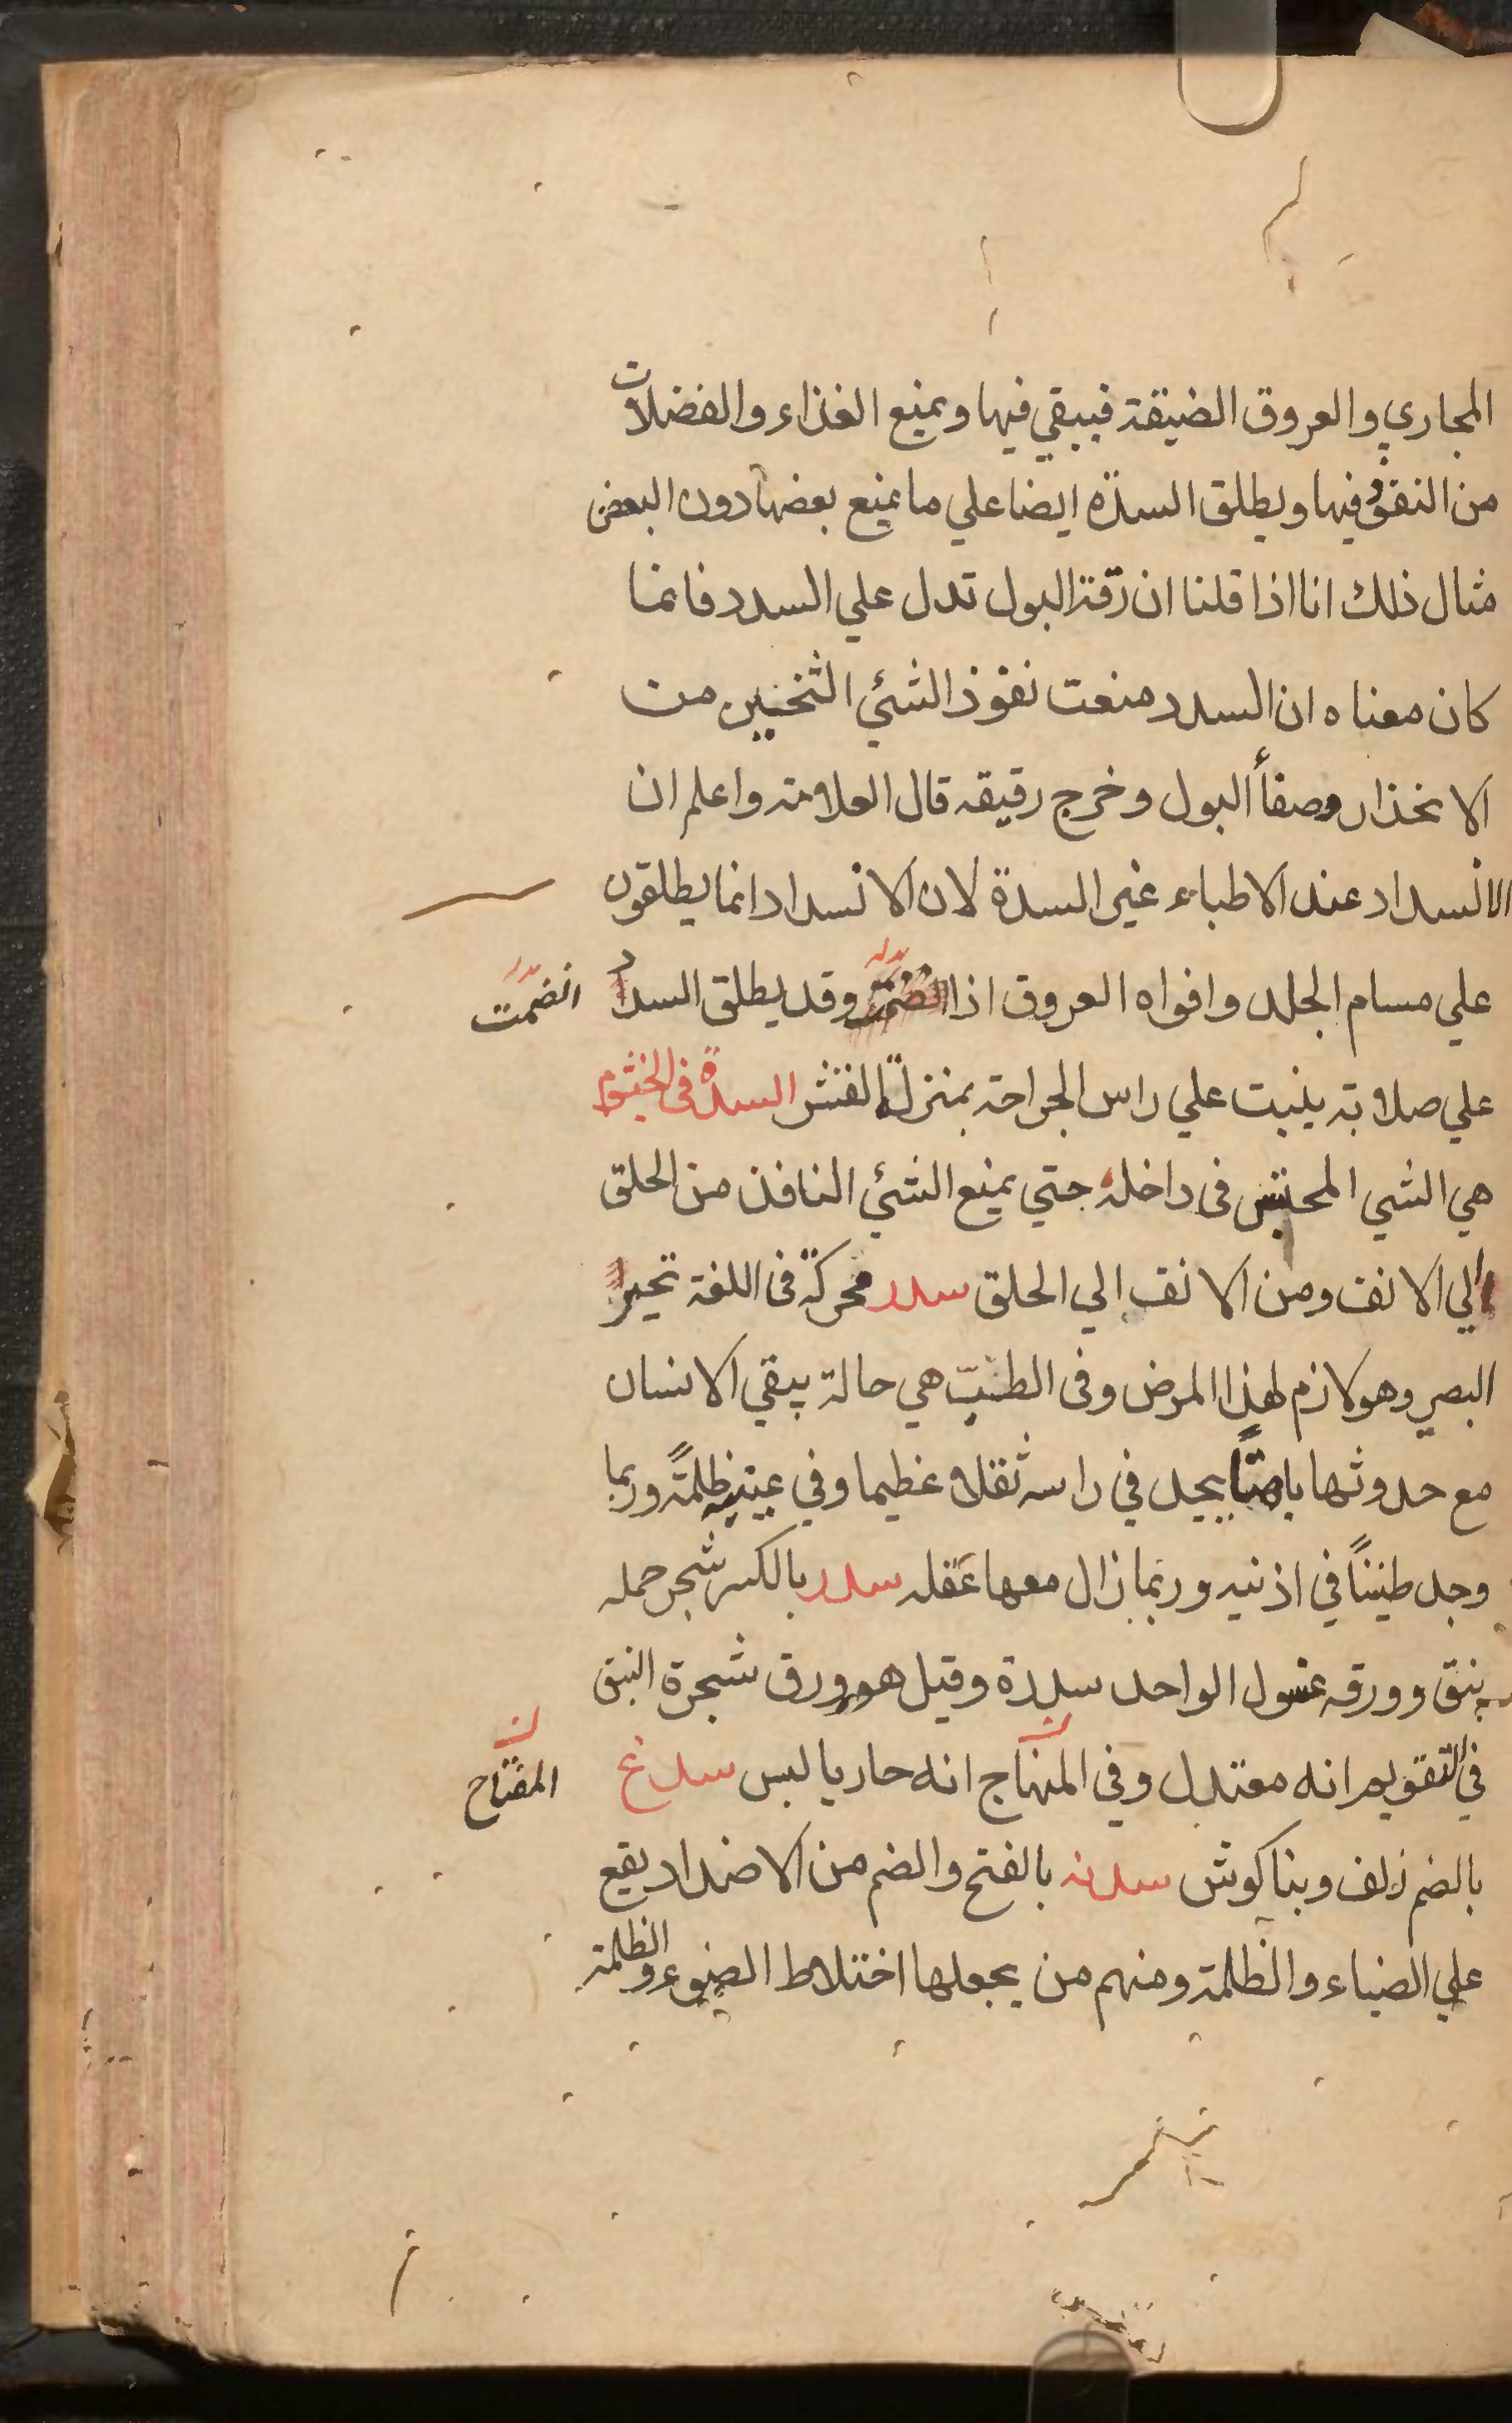 المجاري والعروق الضيقة فيبقي فيها ويمنع الغذاء والفضلات
من النفوذ فيها ويطلق السدّه ايضا علي ما يمنع بعضها دون البعض
مثال ذلك انا اذا قلنا ان رّقة البول تدل علي السدد فانما
كان معناه ان السدد منعت نفوذ الشئي الثخين من
الانحذار وصفأ البول وخرج رقيقه قال العلامة واعلم ان
الانسداد عند الاطباء غير السدة لان الانسداد انما يطلقون
علي مسام الجلد وافواه العروق اذا وقد يطلق السدد
انضمّت
علي صلابة ينبت علي راس الجراحة بمنزلة القشر السدة فى الخيشوم
هي الشي المحتبس فى داخله حتي يمنع الشئي النافذ من الحلق
الي الانف ومن الانف الي الحلق سدر محركة فى اللغة تحير
البصر وهو لازم لهذا المرض وفى الطبّ هي حالة يبقي الانسان
مع حدوثها باهتاً يجد في راسه ثقلا عظيما وفي عينيه ظلمةً وربما
وجد طنيناً في اذنيه وربما زال معها عَقله سدر بالكسر شجر حمله
نبق وورقه غسول الواحد سدرة وقيل هو ورق شجرة النبق
في التقويم انه معتدل وفي المنهاج انه حار يابس سدغ
المفتاح
بالضم زلف وبناكوش سدفه بالفتح والضم من الاضداد يقع
علي الضياء والظلمة ومنهم من يجعلها اختلاط الضوء والظلمة